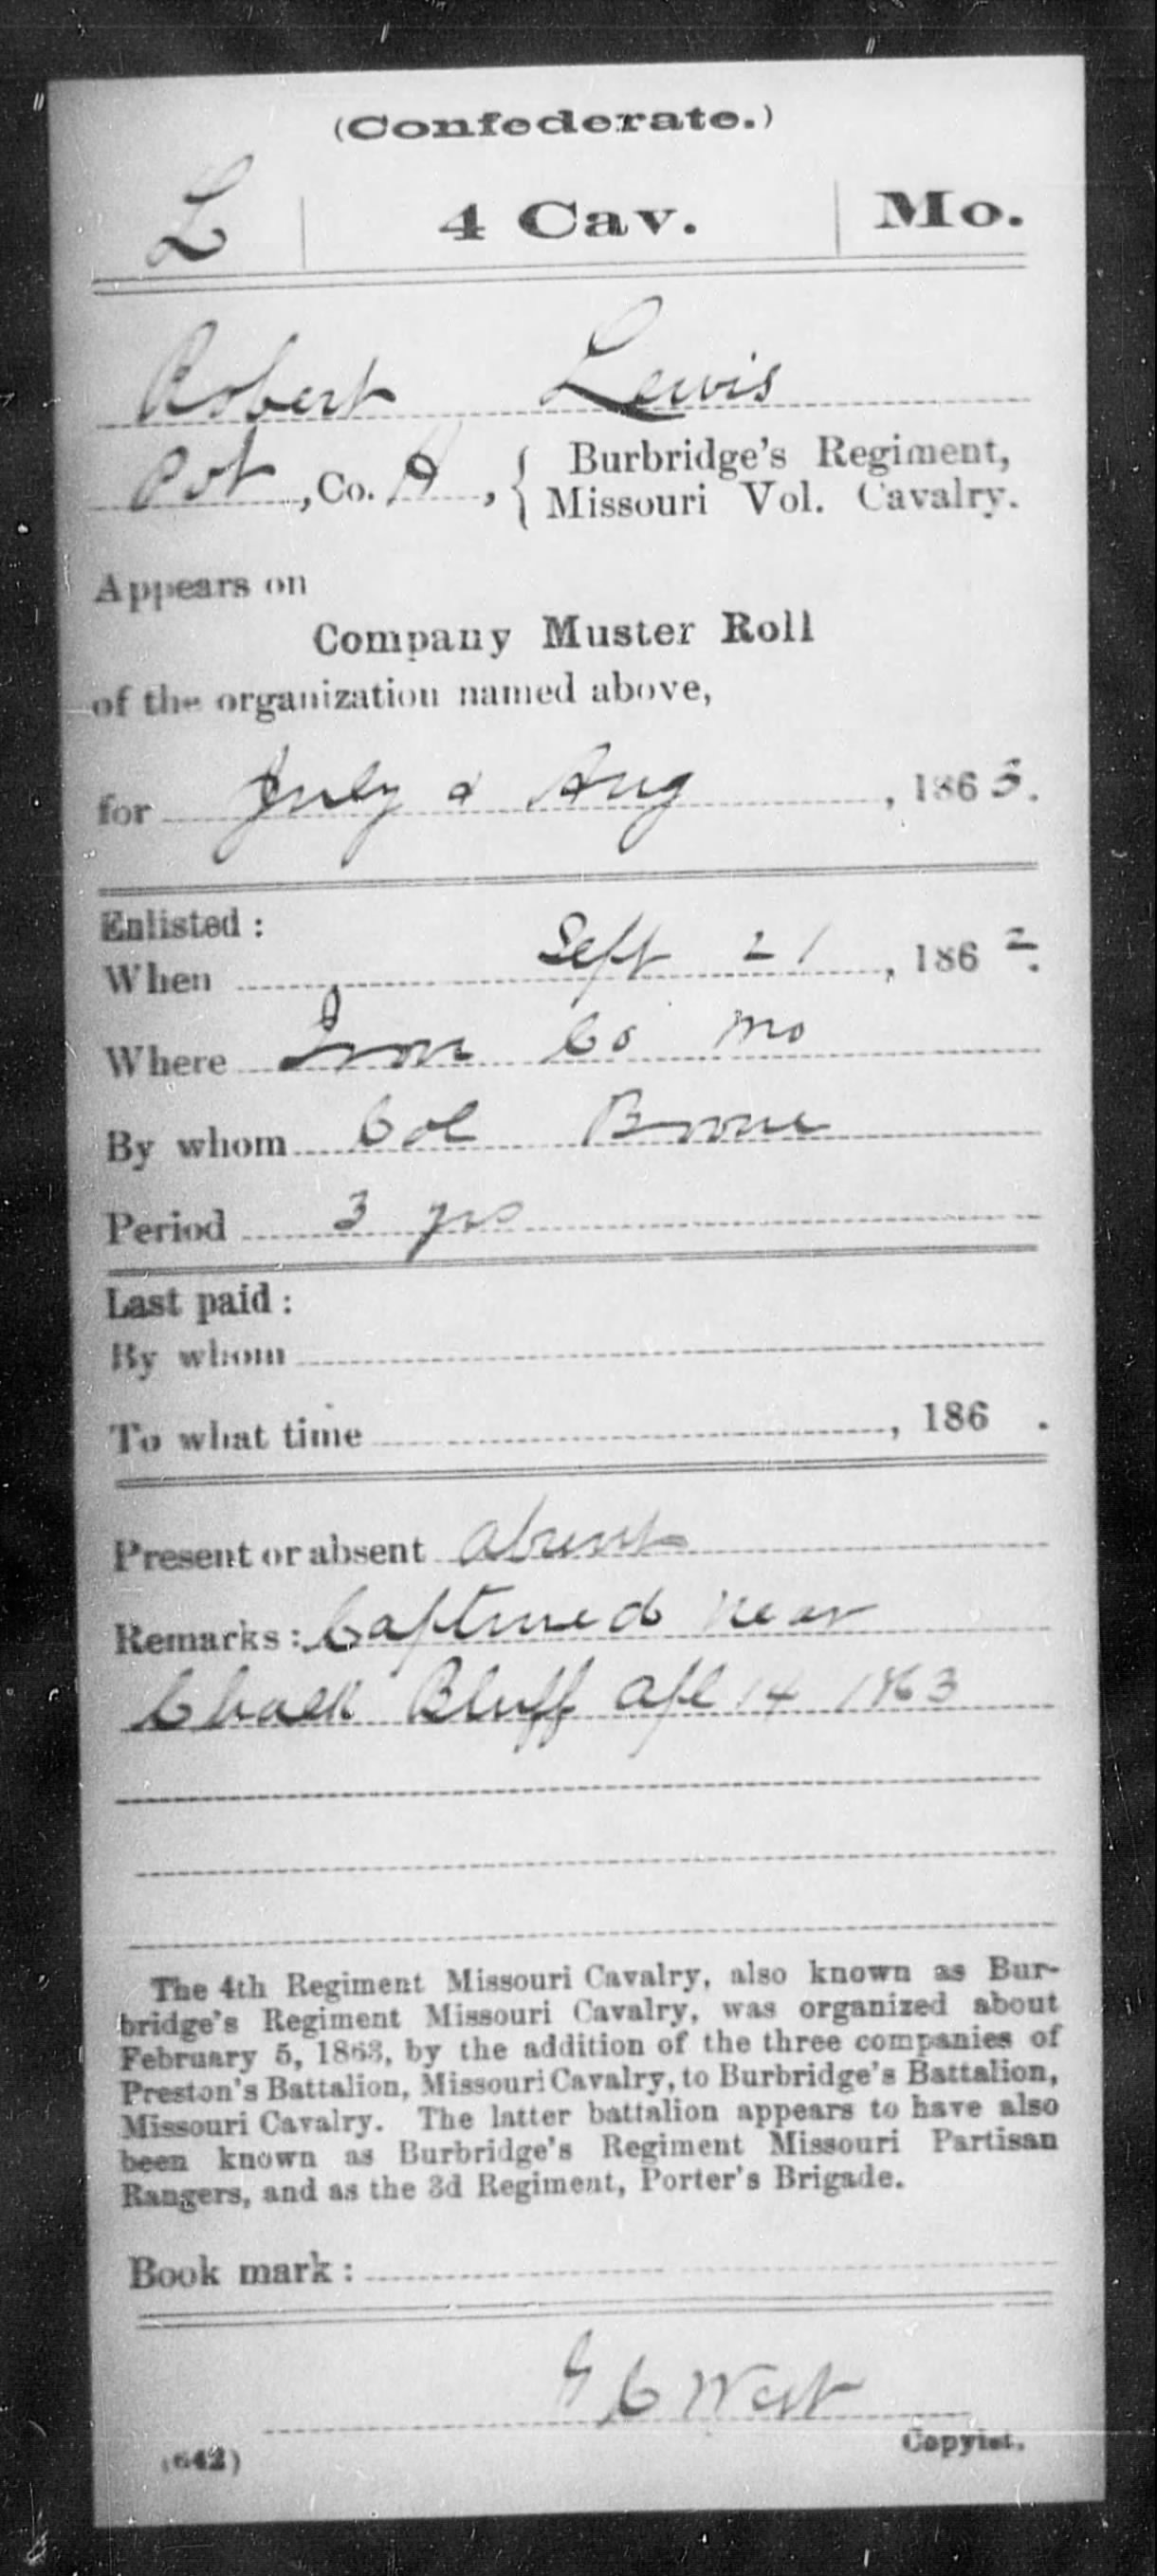 (Confederate.)
L | 4 Cav. | Mo.
Robert Lewis
Pvt, Co. A, { Burbridge's Regiment,
Missouri Vol. Cavalry.
Appears on
Company Muster Roll
of the organization named above,
for July & Aug, 1863.
Enlisted:
When Sept 21, 1862.
Where Iron Co Mo
By whom Col Boone
Period 3 yrs
Last paid:
By whom
To what time, 186 .
Present or absent absent
Remarks: Captured near
Chalk Bluff Apl 14 1863
The 4th Regiment Missouri Cavalry, also known as Bur-
bridge's Regiment Missouri Cavalry, was organized about
February 5, 1863, by the addition of the three companies of
Preston's Battalion, Missouri Cavalry, to Burbridge's Battalion,
Missouri Cavalry. The latter battalion appears to have also
been known as Burbridge's Regiment Missouri Partisan
Rangers, and as the 3d Regiment, Porter's Brigade.
Book mark:
C West
(642) Copyist.